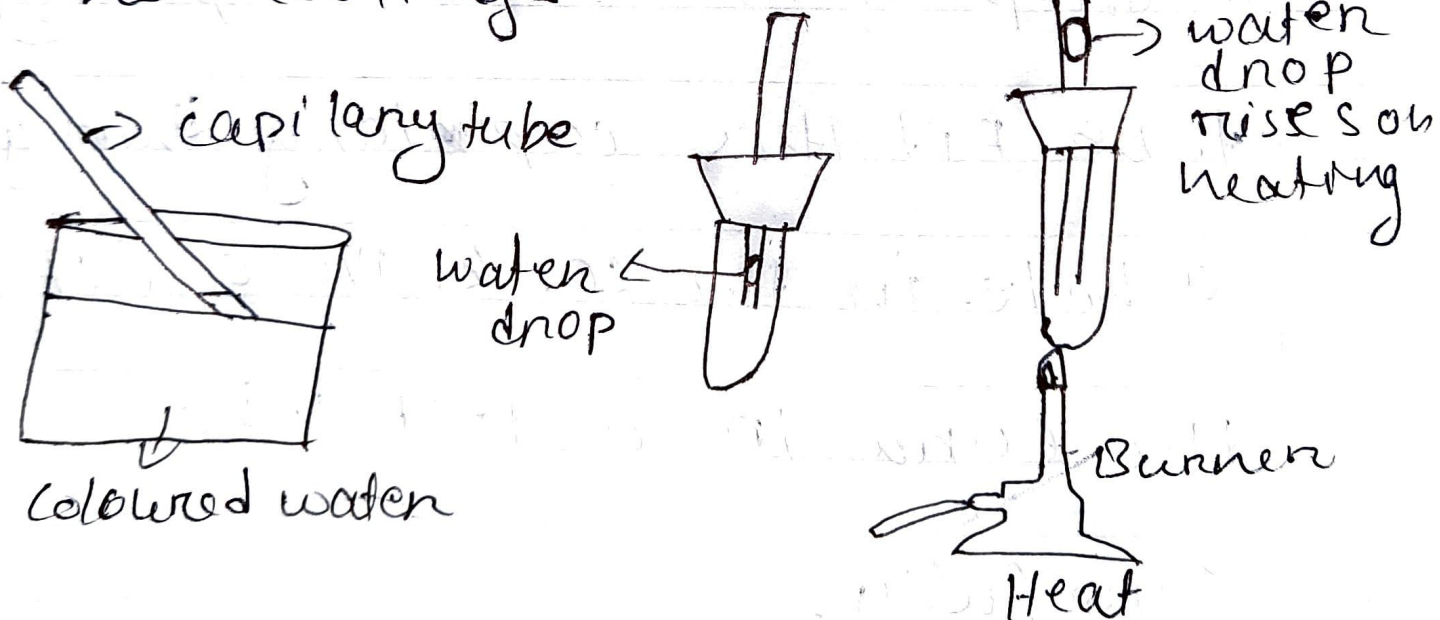 capilary tube
water
drop
water
drop
rises on
heating
Burner
coloured water
Heat